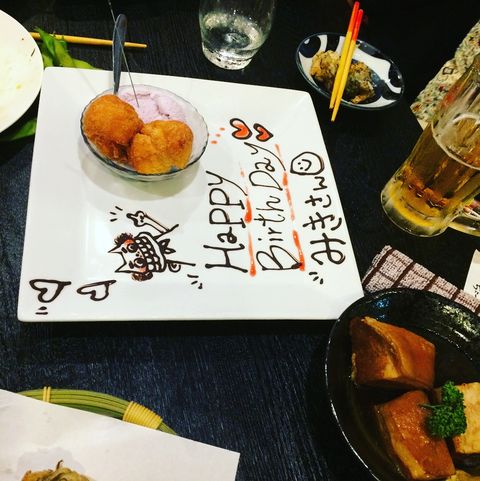 HaPPY
Birth Day
みきさん